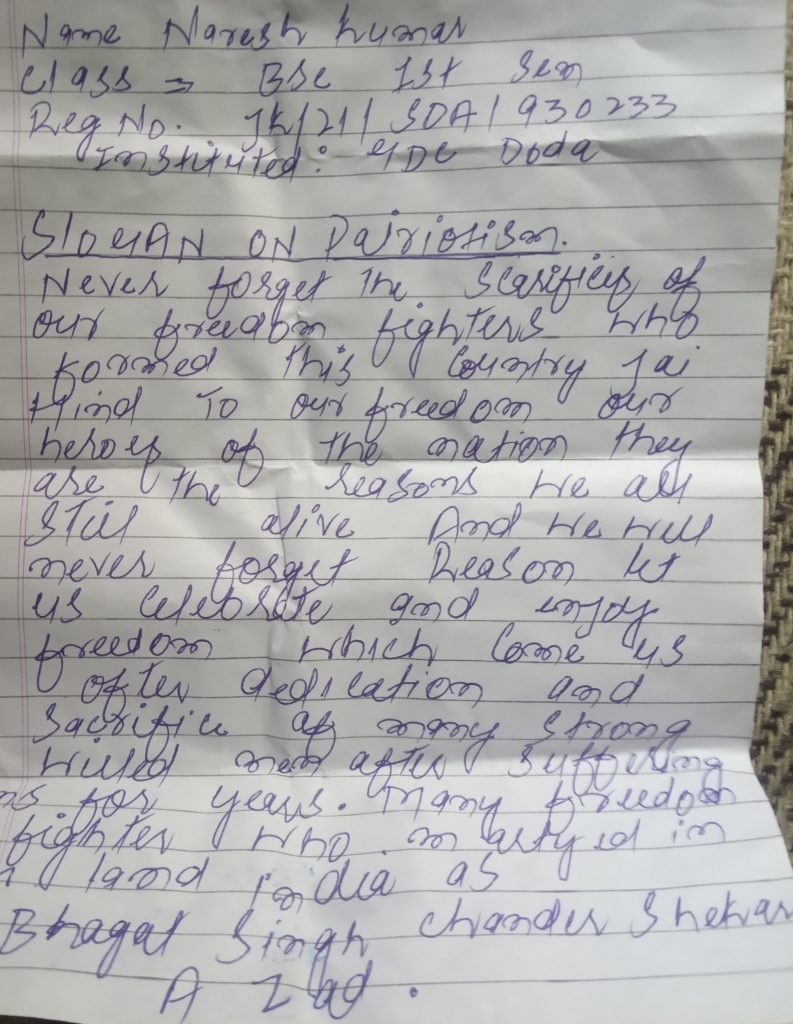 Name Naresh Kumar
Class = BSc 1st Sem
Reg No. JK/21/SDA/930233
Instituted: GDC Doda
SloGAN ON Patriotism.
Never forget The Scarifices of
our freedom fighters who
formed this Country Jai
Hind To our freedom our
heroes of the nation they
are the reasons we all
Still alive And we will
never forget Reason let
us Celebrate and enjoy
freedom which Come us
after dedication and
Sacrifice of many strong
willed men after suffering
for years. Many freedom
fighter who martyed in
land india as
Bhagat Singh Chander Shekar
A Zad.